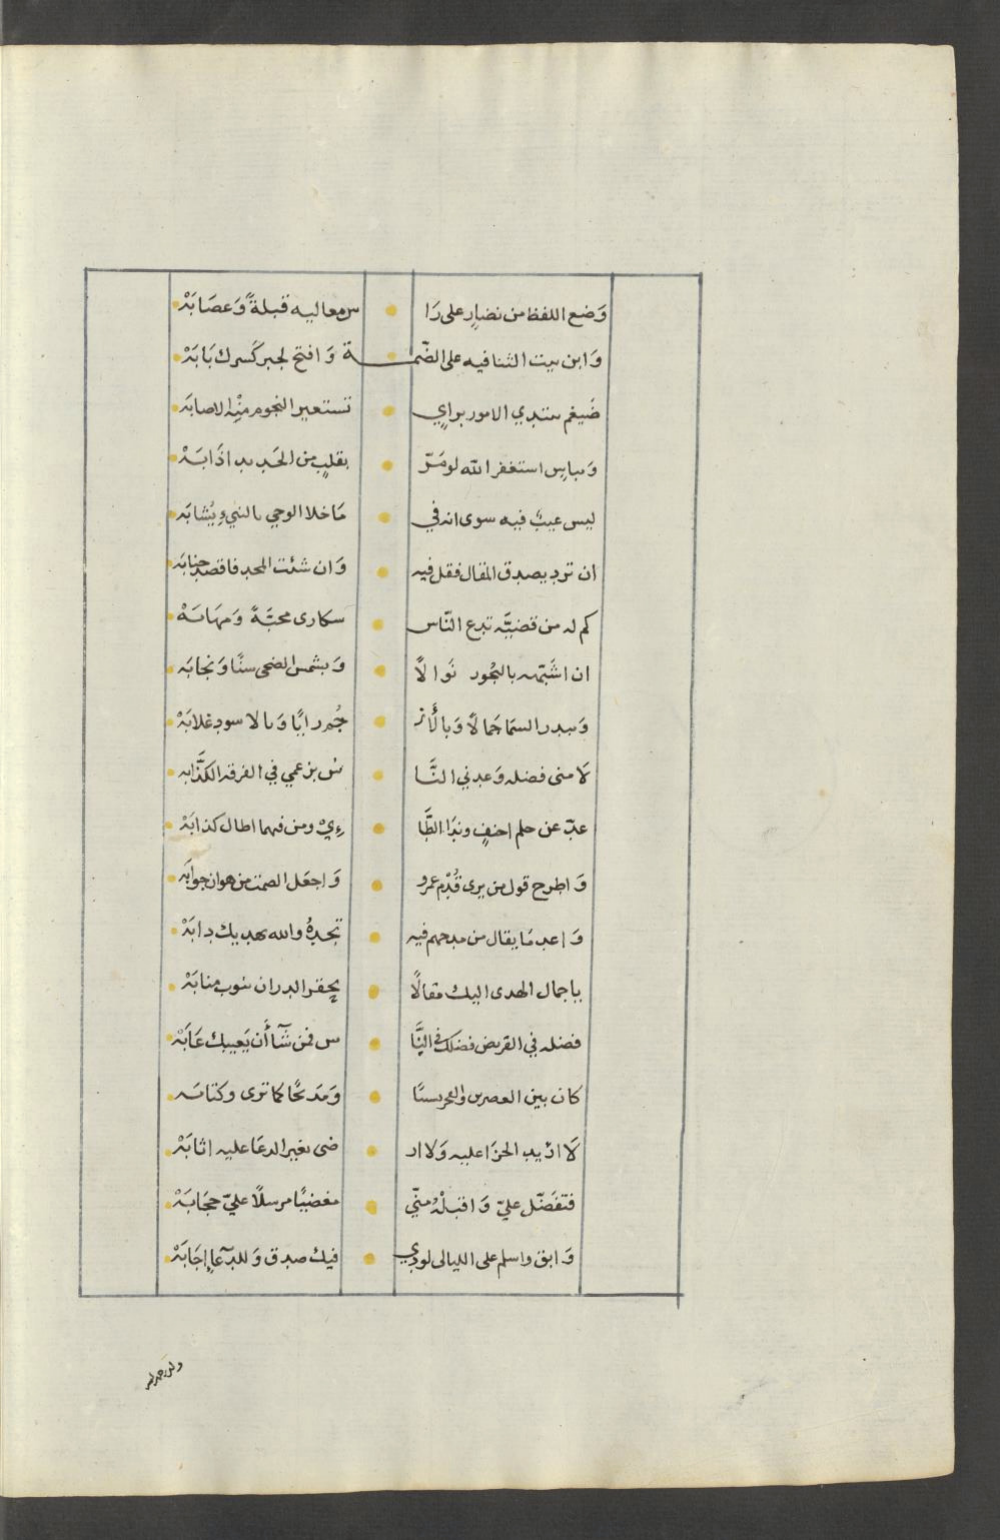 وَضع اللفظ من نضارٍ على رَا س معاليه قبلةً وَعصَابَهْ
وَابن بيت الثنا فيه على الضّمـــة وَافتح لجبر كَسرك بَابَهْ
ضَيغم يبتدي الامور براي تستعير النجوم منْه الاصابَه
وَبباسٍ استغفر الله لو مَرّ بقلبٍ من الحَديد اذَابَهْ
ليس عيبٌ فيه سوى انه في مَا خلا الوحي بالنبي ويُشابَه
ان ترد يصدق المقال فقل فيه وَان شئت المجد فاقصد جنابَه
كم له من قضيّه تدع النّاس سكارى محبّةً وَمهَابَهْ
ان اشبّهه بالبحُور نَوالًا وَبشمس الضحى سنًا وَنجابَه
وَببدر السمَا جمَالًا وَبالأنـ جُم رايًا وَبالاسود غلابَهْ
لَا منى فضله وَعدني النَّا س بزعمي في الفرقه الكذَّابه
عدّ عن حلم احنفٍ وندَا الطَّا ءِيْ ومن فيهما اطال كذابَهْ
وَاطرح قول من يرى قُدْم عمرو وَاجعَل الصمت من هوان جوابَه
وَاعد مَا يقال من مدحهم فيه تجدهُ والله يهديك دابَهْ
ياجمال الهدى اليك مقالًا يحقر الدر ان ينوب منابَهْ
فضله في القريض فضلك في النَّا س فمن شآأَن يَعيبك عَابَهْ
كان بين العصرين والغرس بيتًا وَمَديحًا كما ترى وكتابَه
لَا اريد الجزَا عليه وَلا ار ضى بغير الدعَا عليه اثابَهْ
فتفَضّل عليّ وَاقبلْهُ منّي مغضبًا مرسلًا عليّ حجَابَهْ
وَابق واسلم على الليالى لودي فيك صدق وَللدّعاءِ اجَابَهْ